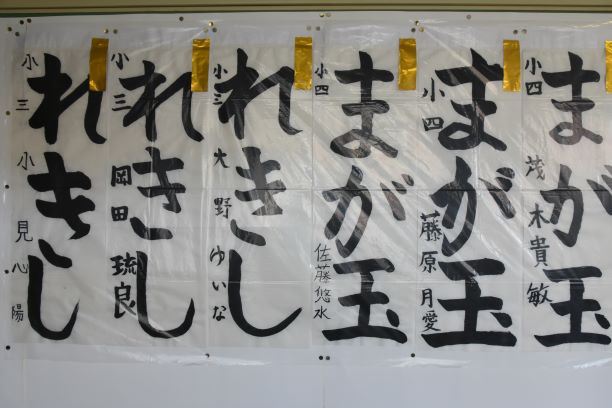 まが玉
小四 茂木貴敏
まが玉
小四 藤原月愛
まが玉
小四 佐藤悠水
れきし
小三 大野ゆいな
れきし
小三 岡田琉良
れきし
小三 小見心陽